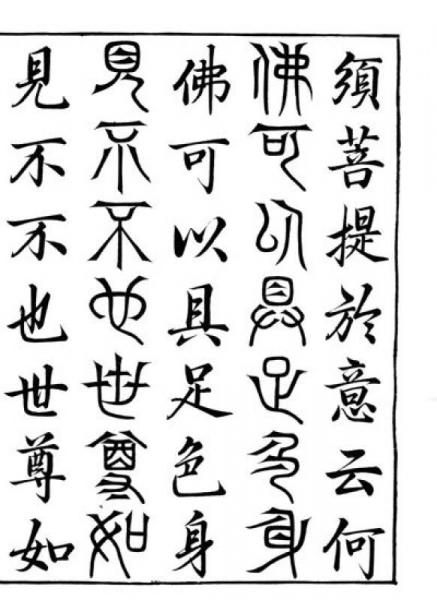 須菩提於意云何
佛可以具足色身
佛可以具足色身
見不不也世尊如
見不不也世尊如